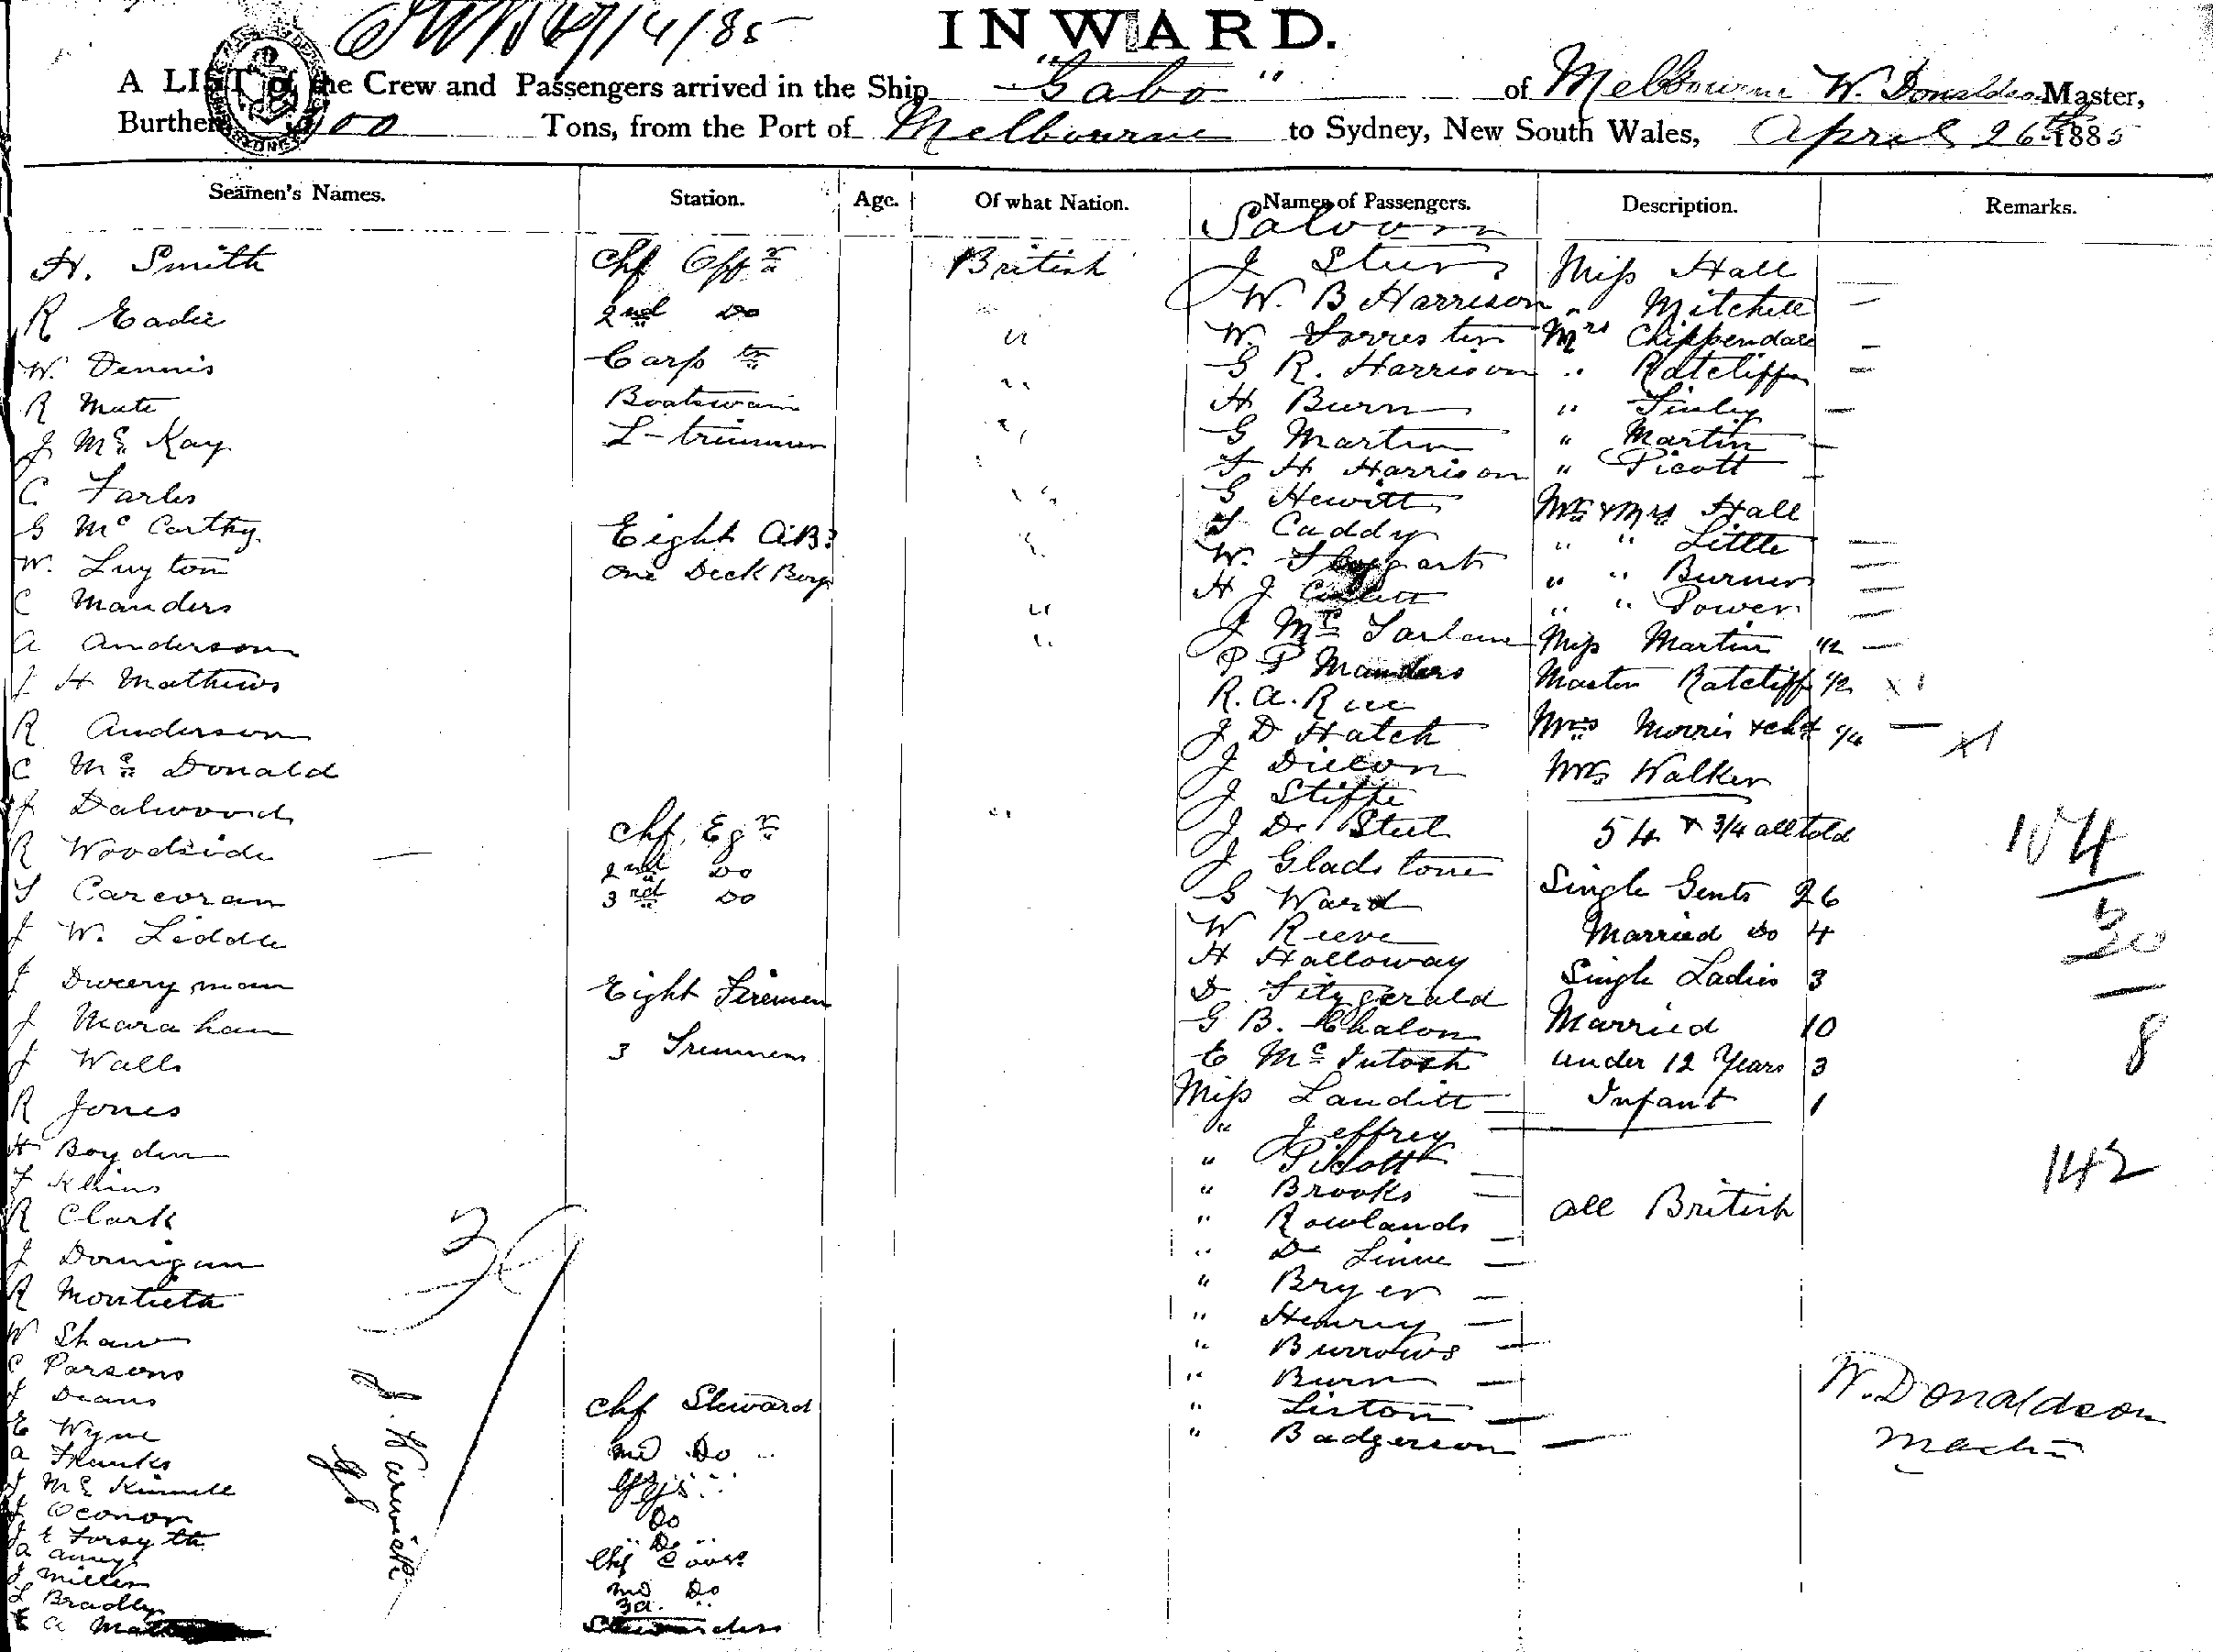 INWARD.
A LIST of the Crew and Passengers arrived in the Ship "Gabo" of Melbourne W. Donaldson Master,
Burthen 00 Tons, from the Port of Melbourne to Sydney, New South Wales, April 26th 1885
Seamen's Names. Station. Age. Of what Nation. Names of Passengers. Description. Remarks.
H. Smith
R Eadie
W. Dennis
R Mute
J McKay
C Farles
G McCarthy
W. Luyton
C Manders
A Anderson
J H Mathews
R Anderson
C McDonald
J Dalwood
R Woodside
Carcoran
J W. Liddle
J
J
J Walls
R Jones
H Boyden
R Clark
J
R Montieth
W Shaw
C Parsons
J Deans
E Wyne
A Franks
J
J Oconor
J E Forsyth
A
J Miller
Bradley
A
J. Warwick
Chf Offr
2nd Do
Carptr
Boatswain
L-trimmer
Eight A.B.s
One Deck Boy
Chf Egr
2nd Do
3rd Do
Eight Firemen
3 Trimmers
Chf Steward
2nd Do
Do
Do
Chf Cook
2nd Do
3d. "
Stewardess
British
"
"
"
"
"
"
"
Saloon
J
W. B Harrison
W. Forrester
G R. Harrison
H Burn
G Martin
F H Harrison
G Hewitt
Caddy
W.
H J
J McFarlane
P P Manders
R. A. Rice
J D Hatch
J Dixon
J
J D Steel
J Gladstone
G Ward
W Reeve
H Halloway
D Fitzgerald
G B. Chalon
E McIntosh
Miss
" Jeffrey
" Picott
" Brooks
" Rowlands
" De
" Bryer
" Henry
" Burrows
" Burn
" Liston
" Badgerson
Miss Hall
" Mitchell
Mrs Chippendale
" Ratcliffe
" Finley
" Martin
" Picott
Mr & Mrs Hall
" " Little
" " Burner
" " Power
Miss Martin 1/2
Master Ratcliff 1/2 x1
Mrs Morris & chd 1/4 x1
Mrs Walker
54 & 3/4 all told
Single Gents 26
Married Do 4
Single Ladies 3
Married 10
under 12 Years 3
Infant 1
All British
104
30
8
142
W. Donaldson
Master